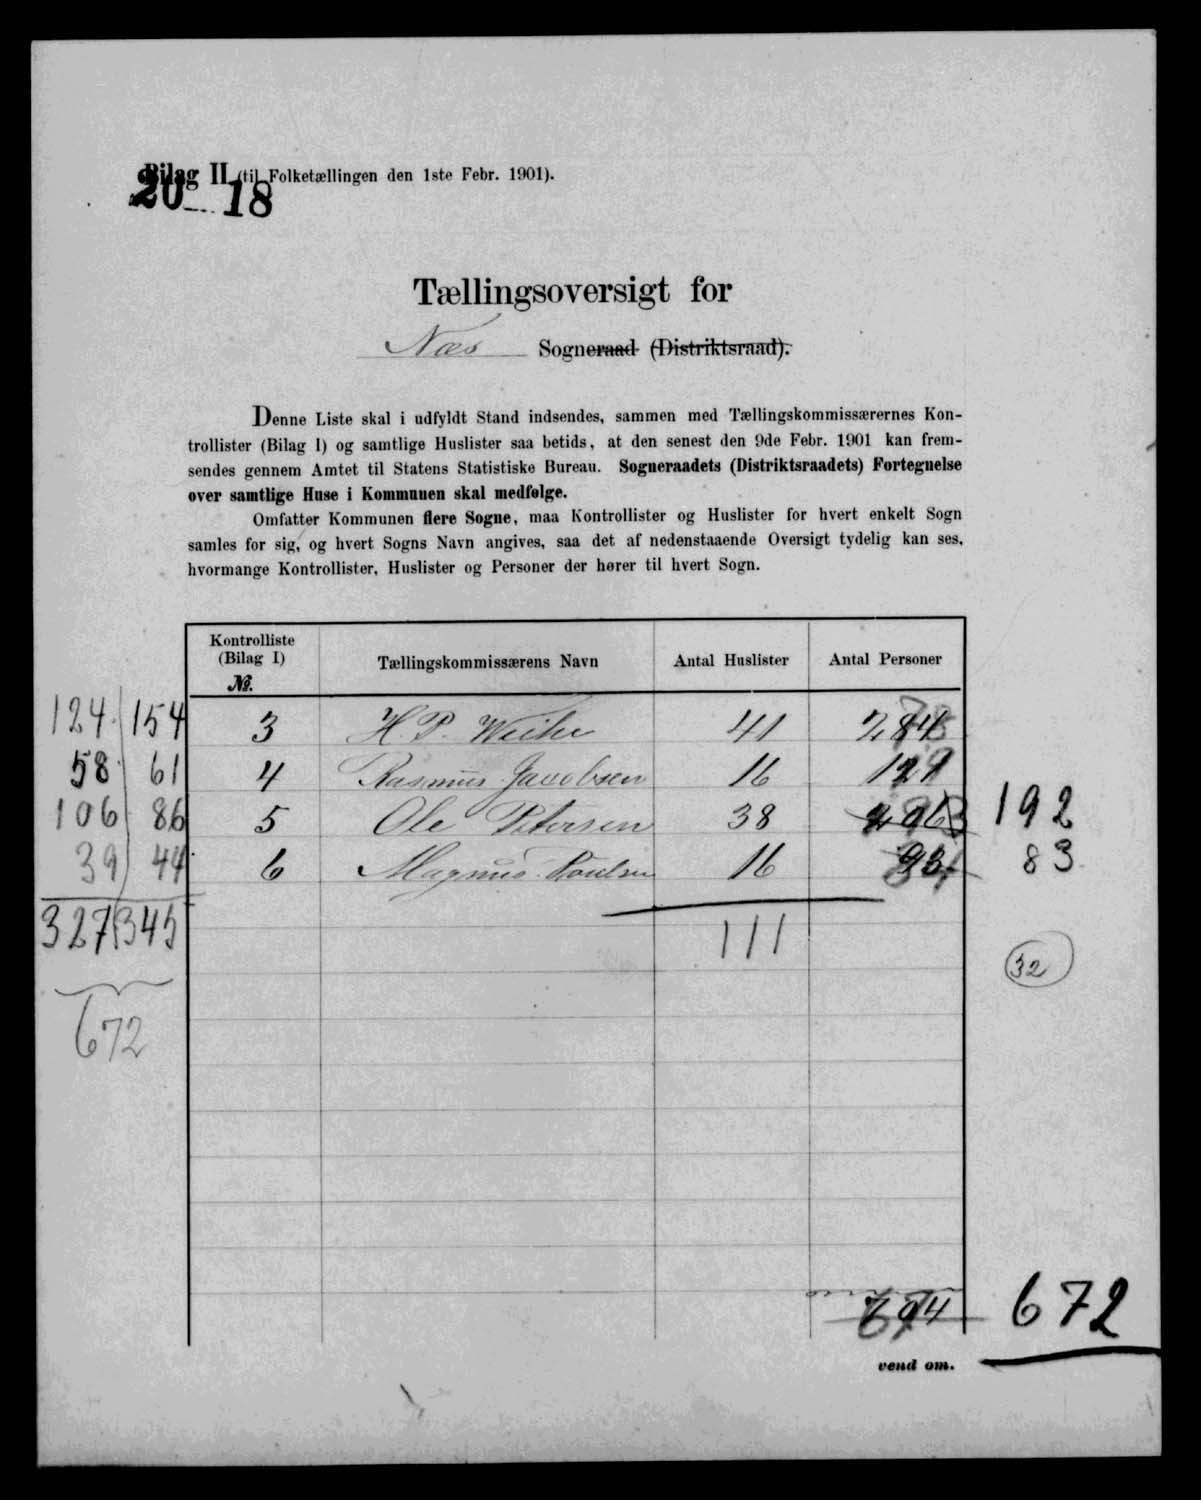 Bilag II (til Folketællingen den 1ste Febr. 1901).
20 18
Tællingsoversigt for
Næs Sogneraad (Distriktsraad).
Denne Liste skal i udfyldt Stand indsendes, sammen med Tællingskommissærernes Kon-
trollister (Bilag I) og samtlige Huslister saa betids, at den senest den 9de Febr. 1901 kan frem-
sendes gennem Amtet til Statens Statistiske Bureau. Sogneraadets (Distriktsraadets) Fortegnelse
over samtlige Huse i Kommunen skal medfølge.
Omfatter Kommunen flere Sogne, maa Kontrollister og Huslister for hvert enkelt Sogn
samles for sig, og hvert Sogns Navn angives, saa det af nedenstaaende Oversigt tydelig kan ses,
hvormange Kontrollister, Huslister og Personer der hører til hvert Sogn.
Kontrolliste
(Bilag I)
№.
Tællingskommissærens Navn
Antal Huslister
Antal Personer
124 154 3 H. P. Weihe 41
58 61 4 Rasmus Jacobsen 16
106 86 5 Ole Petersen 38 192
39 44 6 Magnus Poulsen 16 83
327 345 111
32
672
672
vend om.